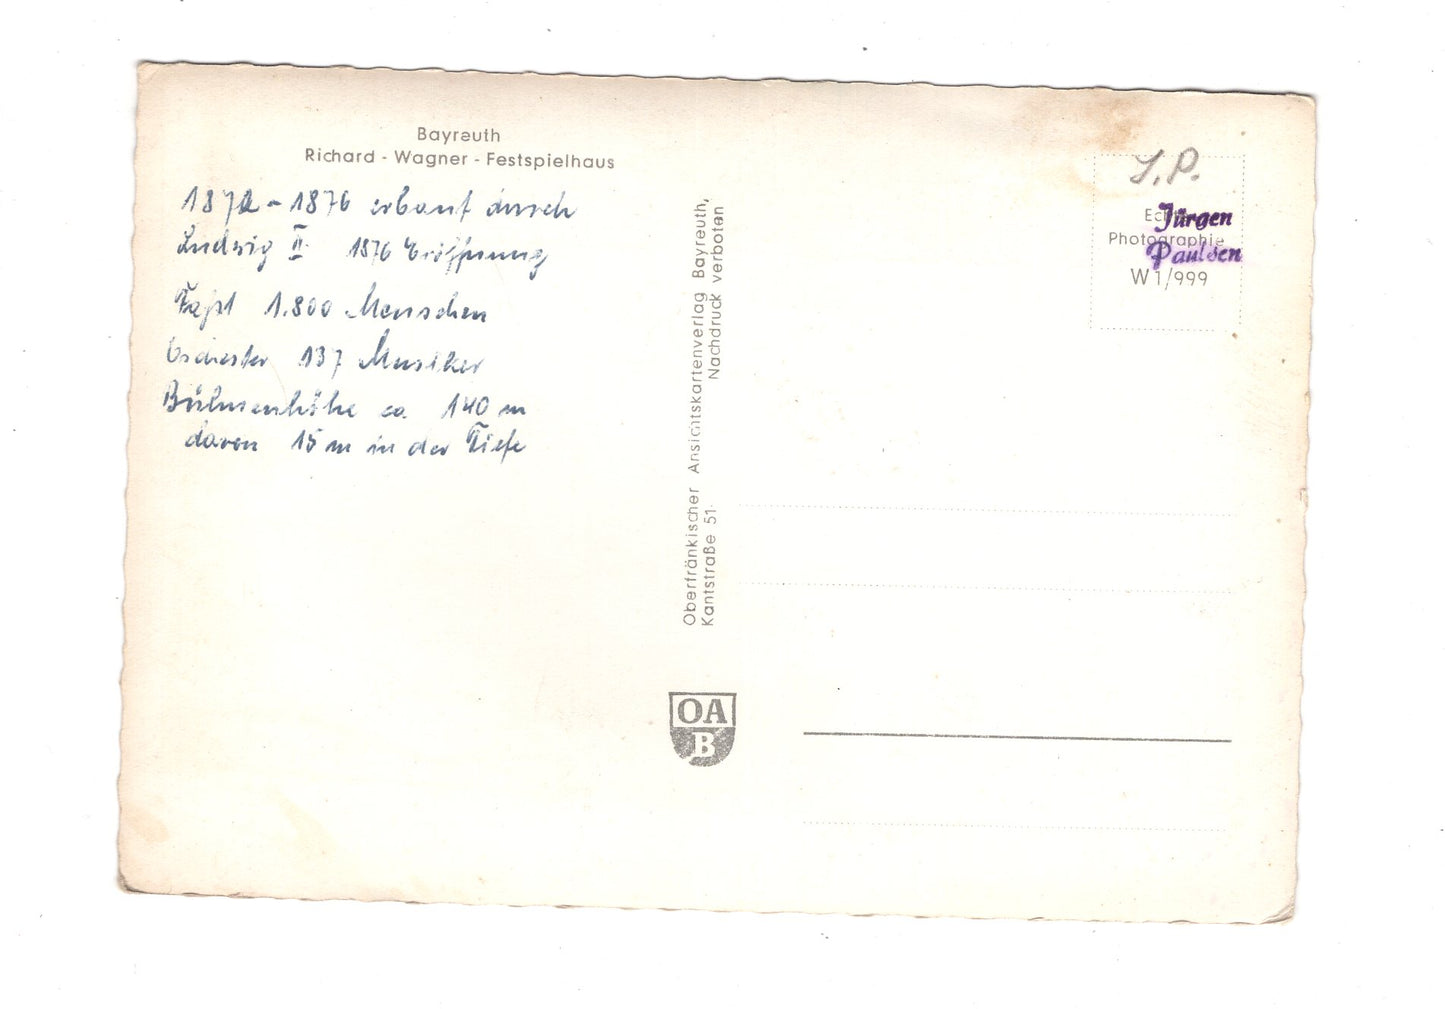 Bayreuth
Richard - Wagner - Festspielhaus
1872 - 1876 erbaut durch
Ludwig II. 1876 Eröffnung
Faßt 1.800 Menschen
Orchester 137 Musiker
Bühnenhöhe ca. 140 m
davon 15 m in der Tiefe
Oberfränkischer Ansichtskartenverlag Bayreuth,
Kantstraße 51. Nachdruck verboten
OA
B
J.P.
Echte
Photographie
W 1/999
Jürgen
Paulsen